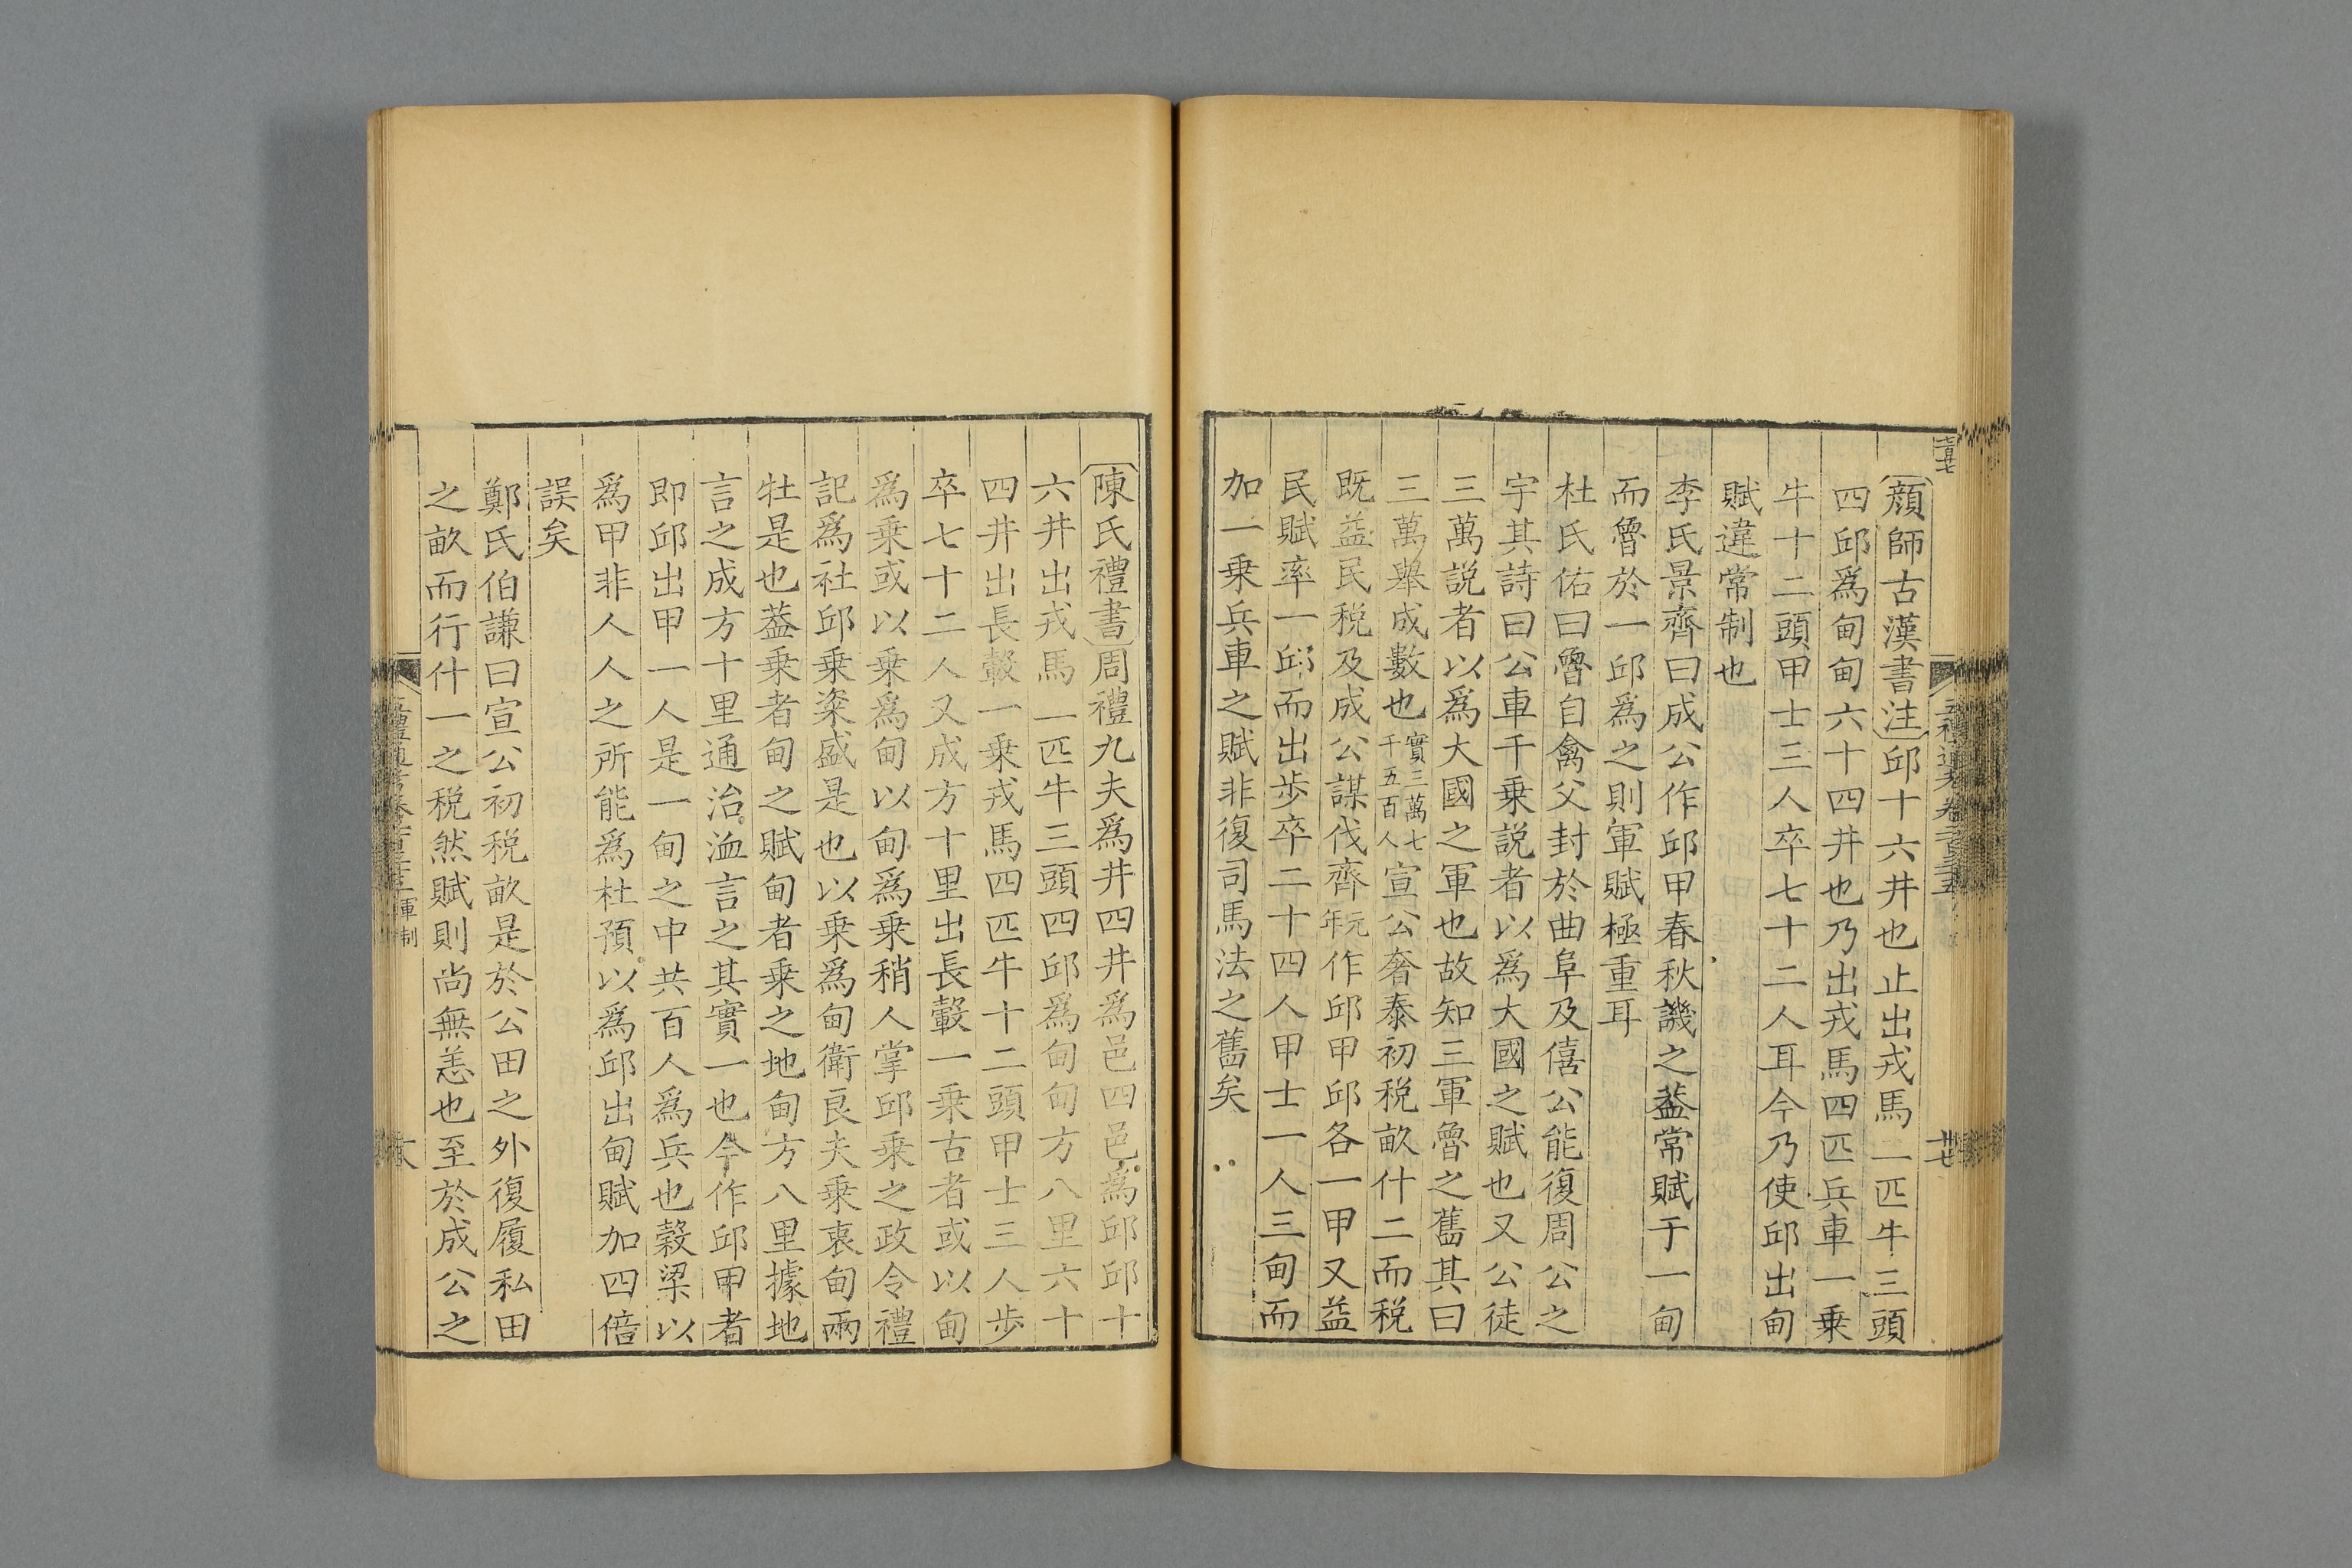 顔師古漢書注邱十六井也止出戎馬一匹牛三頭
四邱爲甸甸六十四井也乃出戎馬四匹兵車一乗
牛十二頭甲士三人卒七十二人耳今乃使邱出甸
賦違常制也
李氏景齊曰成公作邱甲春秋譏之葢常賦于一甸
而魯於一邱爲之則軍賦極重耳
杜氏佑曰魯自禽父封於曲阜及僖公能復周公之
宇其詩曰公車千乗説者以爲大國之賦也又公徒
三萬説者以爲大國之軍也故知三軍魯之舊其曰
三萬舉成數也實三萬七千五百人宣公奢泰初税畝什二而税
既益民税及成公謀伐齊元年作邱甲邱各一甲又益
民賦率一邱而出歩卒二十四人甲士一人三甸而
加一乗兵車之賦非復司馬法之舊矣
陳氏禮書周禮九夫爲井四井爲邑四邑爲邱邱十
六井出戎馬一匹牛三頭四邱爲甸甸方八里六十
四井出長轂一乗戎馬四匹牛十二頭甲士三人歩
卒七十二人又成方十里出長轂一乗古者或以甸
爲乗或以乗爲甸以甸爲乗稍人掌邱乗之政令禮
記爲社邱乗粢盛是也以乗爲甸衛良夫乗衷甸兩
牡是也葢乗者甸之賦甸者乗之地甸方八里據地
言之成方十里通治洫言之其實一也今作邱甲者
即邱出甲一人是一甸之中共百人爲兵也榖梁以
爲甲非人人之所能爲杜預以爲邱出甸賦加四倍
誤矣
鄭氏伯謙曰宣公初税畝是於公田之外復履私田
之畝而行什一之税然賦則尚無恙也至於成公之
軍制